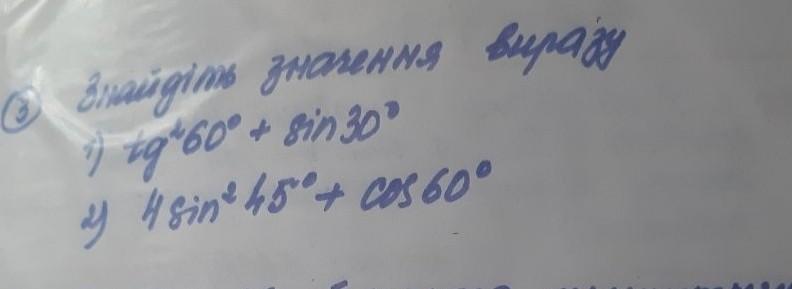 ③ Знайдіть значення виразу
1) tg²60° + sin30°
2) 4sin²45° + cos60°